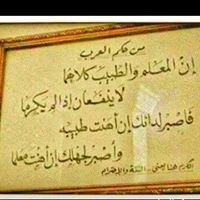 من حكم العرب
إن المعلم والطبيب كلاهما
لا ينفعان إذا لم يكرما
فاصبر لدائك إن أهنت طبيبه
واصبر لجهلك إن أهنت معلما